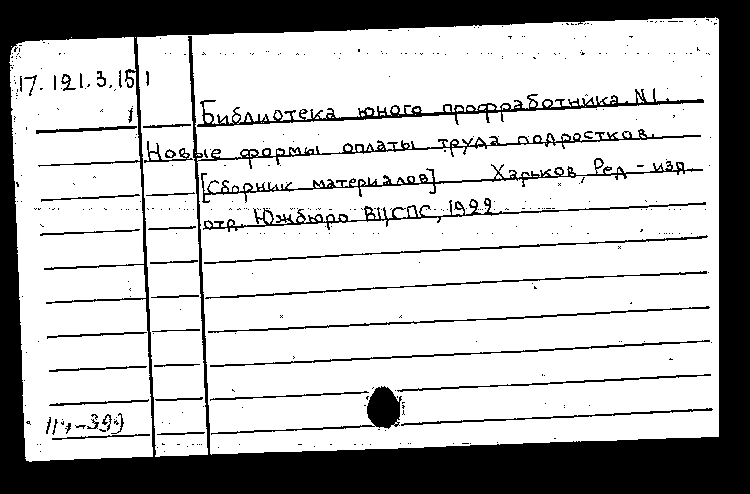 17.121.3.15 1
1 Библиотека юного профработника. N1.
Новые формы оплаты труда подростков.
[Сборник материалов] Харьков, Ред-изд.
отд. Южбюро ВЦСПС, 1922